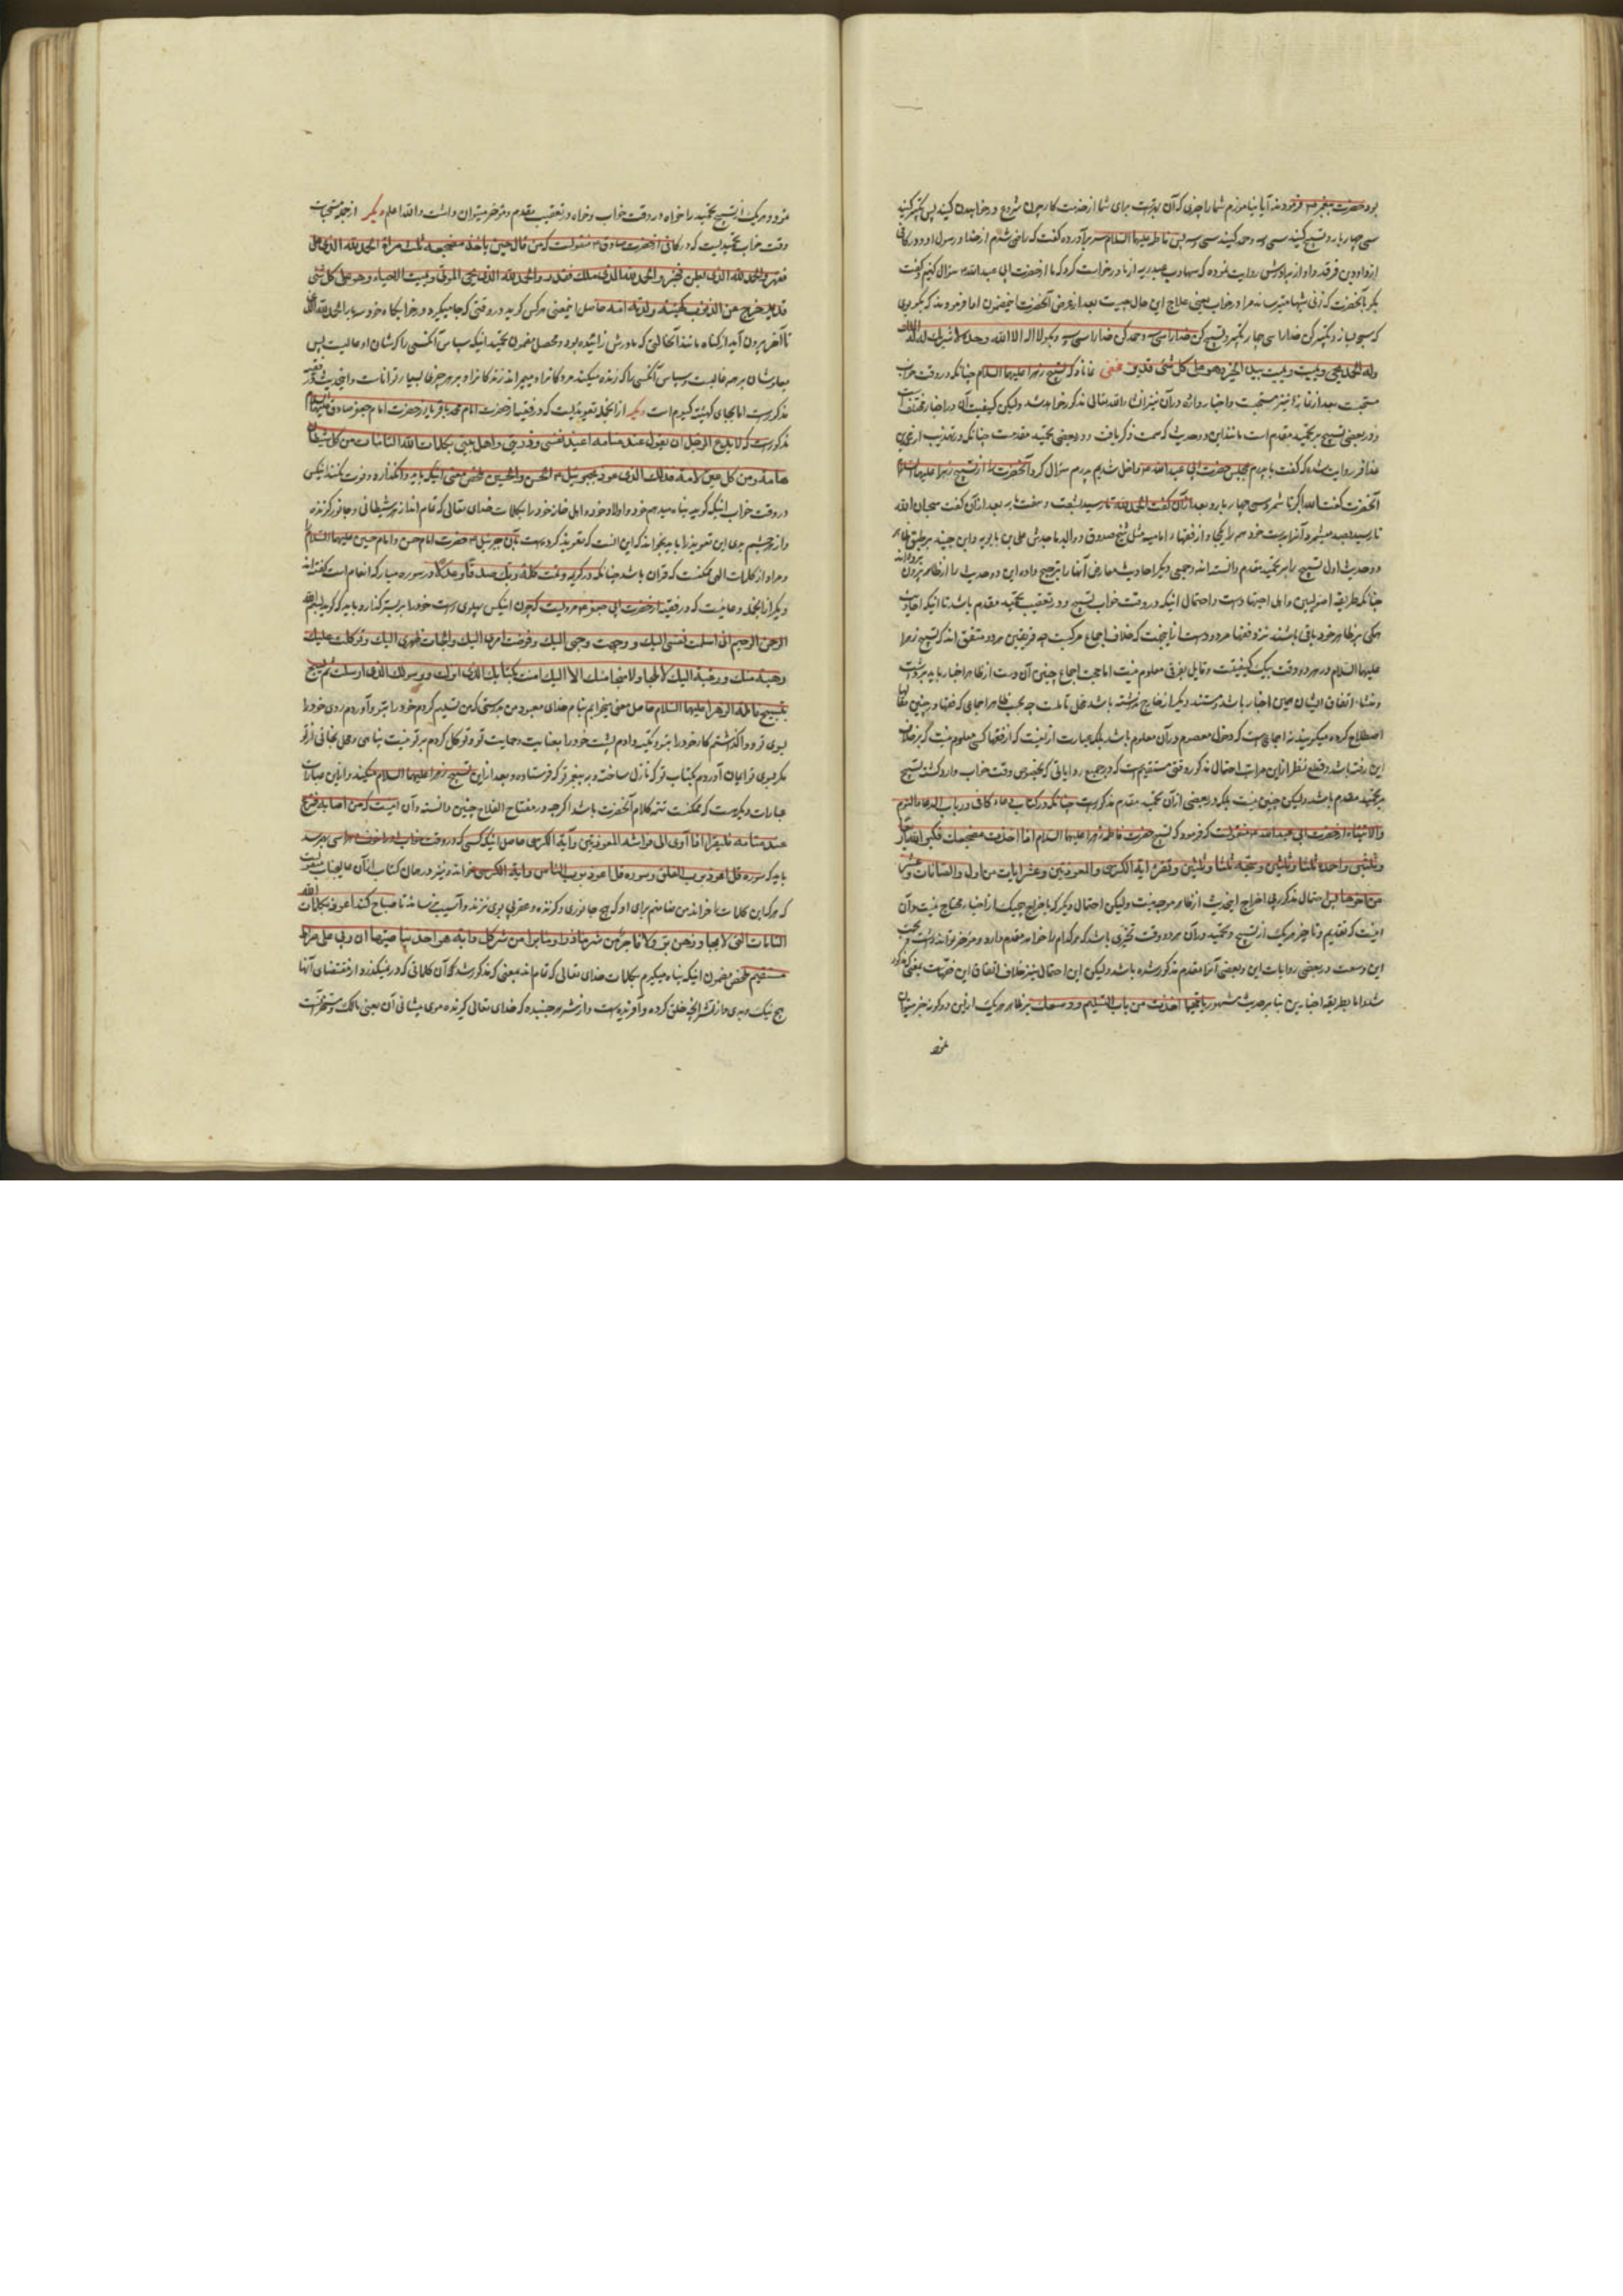 بود حضرت پیغمبر ص فرمودند آیا نیاموزم شما را چیزی که آن بهترست برای شما از خدمت کار چون شروع در خوابیدن کنید پس تکبیر کنید
سی و چهار بار و تسبیح کنید سی و سه و حمد کنید سی و سه پس فاطمه علیها السلام سر برآورده گفت که راضی شدم از خدا و رسول او و در کافی
از داود بن فرقد و او از برادرش روایت نموده که شهاب بن عبد ربه از ما درخواست کرد که ما از حضرت ابی عبد الله ع سؤال کنیم و گفت
بگو بآنحضرت که زنی شبها میترساند مرا در خواب یعنی علاج این حال چیست بعد از عرض آنحضرت اینمضمون اما فرمودند که بگو وی
که مسبحه بساز و تکبیر کن خدا را سی و چهار تکبیر و تسبیح کن خدا را سی و سه و حمد کن خدا را سی و سه و بگو لا اله الا الله وحده لا شریک له له الملک
وله الحمد یحیی و یمیت و یمیت بیده الخیر وهو علی کل شئ قدیر مخفی نماناد که تسبیح زهرا علیها السلام چنانکه در وقت خواب
مستحبست بعد از نماز نیز مستحبست و اخبار وارده در آن نیز انشاء الله تعالی مذکور خواهد شد ولیکن کیفیت آن در اخبار مختلفست
و در بعضی تسبیح بر تحمید مقدم است مانند این دو حدیث که سمت ذکر یافت و در بعضی تحمید مقدمست چنانکه در تهذیب از محمد بن
عذافر روایت شده که گفت با پدرم بمجلس حضرت ابی عبد الله ع داخل شدیم پدرم سؤال کرد آنحضرت را از تسبیح زهرا علیها السلام
آنحضرت گفت الله اکبر تا شمرد سی و چهار بار و بعد از آن گفت الحمد لله تا رسید بشصت و هفت و بعد از آن گفت سبحان الله
تا رسید بصد میشمرد آنرا بدست خود همه را یکجا و از فقهاء امامیه مثل شیخ صدوق و والد ماجدش علی بن بابویه و ابن جنید بر طبق ظاهر
دو حدیث اول تسبیح را بر تحمید مقدم دانسته اند و جمعی دیگر احادیث معارض آنها را ترجیح داده این دو حدیث را از ظاهر بیرون برده اند
چنانکه طریقه اصولیین و اهل اجتهاد است و احتمال اینکه در وقت خواب تسبیح و در تعقیب تحمید مقدم باشد تا اینکه احادیث
همگی بر ظاهر خود باقی باشند نزد فقها مردود است از اینجهت که خلاف اجماع مرکبست چه فریقین هر دو متفق اند که تسبیح زهرا
علیها السلام در هر دو وقت بیک کیفیتست و قایل بفرقی معلوم نیست اما حجیت اجماع چنین آن دست از ظاهر اخبار باید برداشت
و منشاء اتفاق ایشان همین اخبار باشد و مستند دیگر از خارج نداشته باشد محل تأملست چه بحسب ظاهر اجماعی که فقها در چنین مقام
اصطلاح کرده میگویند نه اجماعیست که دخول معصوم در آن معلوم باشد بلکه عبارت از اینست که از فقها کسی معلوم نیست که بر خلاف
این رفته باشد و قطع نظر از این مراتب احتمال مذکور وقتی مستقیم است که در جمیع روایاتی که بخصوص وقت خواب وارد گشته تسبیح
بر تحمید مقدم باشد ولیکن چنین نیست بلکه در بعضی از آن تحمید مقدم مذکورست چنانکه در کتاب دعاء کافی در باب الدعاء عند النوم
والانتباه از حضرت ابی عبد الله ع منقولست که فرمود که تسبیح حضرت فاطمه زهرا علیها السلام اذا اخذت مضجعک فکبر الله اربعا
وثلثین واحمده ثلثا وثلثین وسبحه ثلثا وثلثین وتقرء ایة الکرسی والمعوذتین وعشر ایات من اول والصافات وعشرا
من اخرها پس احتمال مذکور بی اخراج اینحدیث از ظاهر موجه نیست ولیکن احتمال دیگر که باخراج هیچیک از اخبار محتاج نیست و آن
اینست که تقدیم و تاخیر هر یک از تسبیح و تحمید در آن هر دو وقت تخییری باشد که هر کدام را خواهد مقدم دارد و مؤخر تواند داشت و بجهت
این وسعت در بعضی روایات این و بعضی آنرا مقدم مذکور شده باشد ولیکن این احتمال نیز خلاف اتفاق این فقهاست بمعنی مذکور
شد اما بطریقه اخباریین بنا بر حدیث مشهور بایهما اخذت من باب التسلیم وسعک بر ظاهر هر یک ازین دو گونه خبر میتوان
نمود
نمود و هر یک از تسبیح و تحمید را خواه در وقت خواب و خواه در تعقیب مقدم و مؤخر میتوان داشت والله اعلم دیگر از جمله مستحبات
وقت خواب تحمیدیست که در کافی از حضرت صادق ع منقولست که من قال حین یاخذ مضجعه ثلث مرات الحمد لله الذی علا
فقهر والحمد لله الذی بطن فخبر والحمد لله الذی ملک فقدر والحمد لله الذی یحیی الموتی ویمیت الاحیاء وهو علی کل شئ
قدیر خرج من الذنوب کهیئة یوم ولدته امه حاصل اینمعنی هر کس گوید در وقتی که جا میگیرد در خوابگاه خود سه بار الحمد لله الذی
تا آخر بیرون آید از گناه مانند آنحالتی که مادرش زائیده بود و محصل مضمون تحمید اینکه سپاس آنکسی را که شان او عالیست پس
مذکورست اما بجای کهیئة کیوم است دیگر از آنجمله تعویذیست که در فقیه از حضرت امام محمد باقر یا از حضرت امام جعفر صادق علیهما السلام
مذکورست که لا یدع الرجل ان یقول عند منامه اعیذ نفسی وذریتی واهل بیتی بکلمات الله التامات من کل شیطان
هامة ومن کل عین لامة فذلک الذی عوذ به جبرئیل ع الحسن والحسین ملخص معنی اینکه باید وانگذارد و فوت نکند اینکس
در وقت خواب اینکه گوید پناه میدهم خود و اولاد خود و اهل خانه خود را بکلمات خدای تعالی که تمام اند از هر شیطانی و جانور گزنده
و از چشم بدی این تعویذ را باید بخواند که این آنست که تعویذ کرده است بآن جبرئیل ع حضرت امام حسن و امام حسین علیهما السلام
و مراد از کلمات الهی ممکنست که قرآن باشد چنانکه در کریمه وتمت کلمة ربک صدقا وعدلا در سوره مبارکه انعام است گفته اند
دیگر از آنجمله دعائیست که در فقیه از حضرت ابی جعفر ع مرویست که چون اینکس پهلوی راست خود را بر بستر گذارد باید که گوید بسم الله
الرحمن الرحیم انی اسلمت نفسی الیک ووجهت وجهی الیک وفوضت امری الیک والجأت ظهری الیک وتوکلت علیک
رهبة منک ورغبة الیک لا ملجأ ولا منجا منک الا الیک امنت بکتابک الذی انزلت وبرسولک الذی ارسلت ثم یسبح
تسبیح فاطمة الزهراء علیها السلام حاصل معنی بخوانم بنام خدای معبود من بدرستی که من تسلیم کردم خود را بتو و آوردم روی خود را
بسوی تو و واگذاشتم کار خود را بتو و تکیه دادم پشت خود را بعنایت و حمایت تو و توکل کردم بر تو نیست پناهی و محل نجاتی از تو
مگر بسوی تو ایمان آوردم بکتاب تو که نازل ساخته و بر پیغمبر تو که فرستاده و بعد از این تسبیح زهرا علیها السلام میکند و از این عبارات
عبارات دیگرست که ممکنست تتمه کلام آنحضرت باشد اگرچه در مفتاح الفلاح چنین دانسته و آن اینست که من اصابه فزع
عند منامه فلیقرأ اذا اوی الی فراشه المعوذتین وآیة الکرسی حاصل اینکه کسی که در وقت خواب او را خوف و هراسی بهم رسد
باید که سوره قل اعوذ برب الفلق و سوره قل اعوذ برب الناس وایة الکرسی بخواند و نیز در همان کتاب از آن عالیجناب منقولست
که هر که این کلمات را خواند من ضامنم برای او که هیچ جانوری و گزنده و عقربی بوی نزند و آسیب نرساند تا صباح کند اعوذ بکلمات الله
التامات التی لا یجاوزهن بر ولا فاجر من شر ما ذرأ ومن شر ما برأ ومن شر کل دابة هو اخذ بناصیتها ان ربی علی صراط
مستقیم ملخص مضمون اینکه پناه میگیرم بکلمات خدای تعالی که تمام اند بمعنی که مذکور شد که آن کلماتی که در نمیگذرد از مقتضای آنها
هیچ نیک و بدی و از شر آنچه خلق کرده و آفریده است و از شر هر جنبنده که خدای تعالی گیرنده موی پیشانی آن یعنی مالک و متصرفست